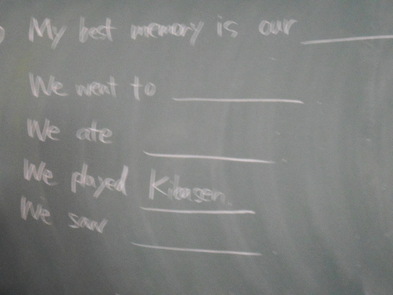 My best memory is our
We went to
We ate
We played Kibasen.
We saw